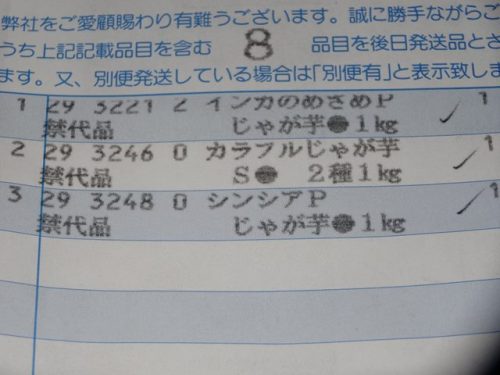 弊社をご愛顧賜わり有難うございます。誠に勝手ながらご
うち上記記載品目を含む 8 品目を後日発送品とさ
ます。又、別便発送している場合は「別便有」と表示致しま
1 29 3221 2 インカのめざめP 1
禁代品 じゃが芋●1kg
2 29 3246 0 カラフルじゃが芋 1
禁代品 S● 2種1kg
3 29 3248 0 シンシアP 1
禁代品 じゃが芋●1kg